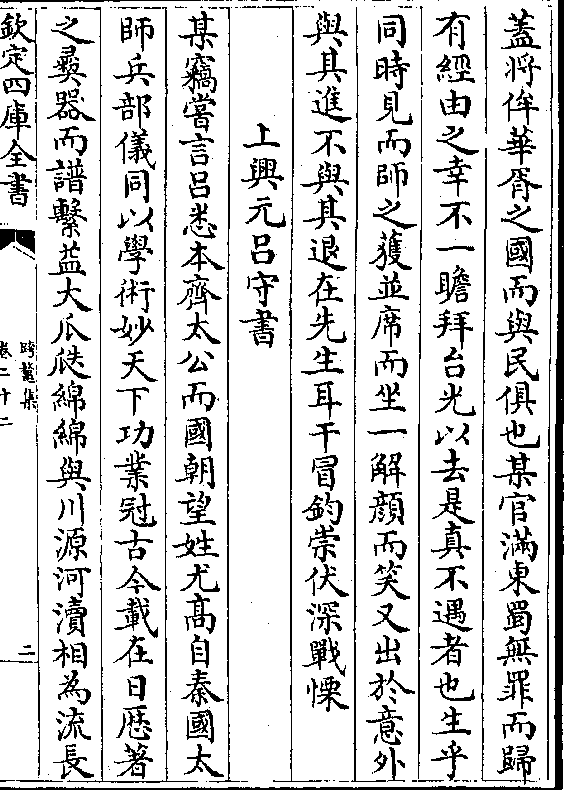 蓋將侔華胥之國而與民俱也某官滿東蜀無罪而歸
有經由之幸不一瞻拜台光以去是真不遇者也生乎
同時見而師之獲並席而坐一解顔而笑又出於意外
與其進不與其退在先生耳干冒鈞崇伏深戰慄
上興元呂守書
某竊嘗言呂悉本齊太公而國朝望姓尤髙自秦國太
師兵部儀同以學術妙天下功業冠古今載在日厯著
之彛器而譜繫益大瓜瓞綿綿與川源河瀆相為流長
欽定四庫全書
跨鼇集
卷二十二
二